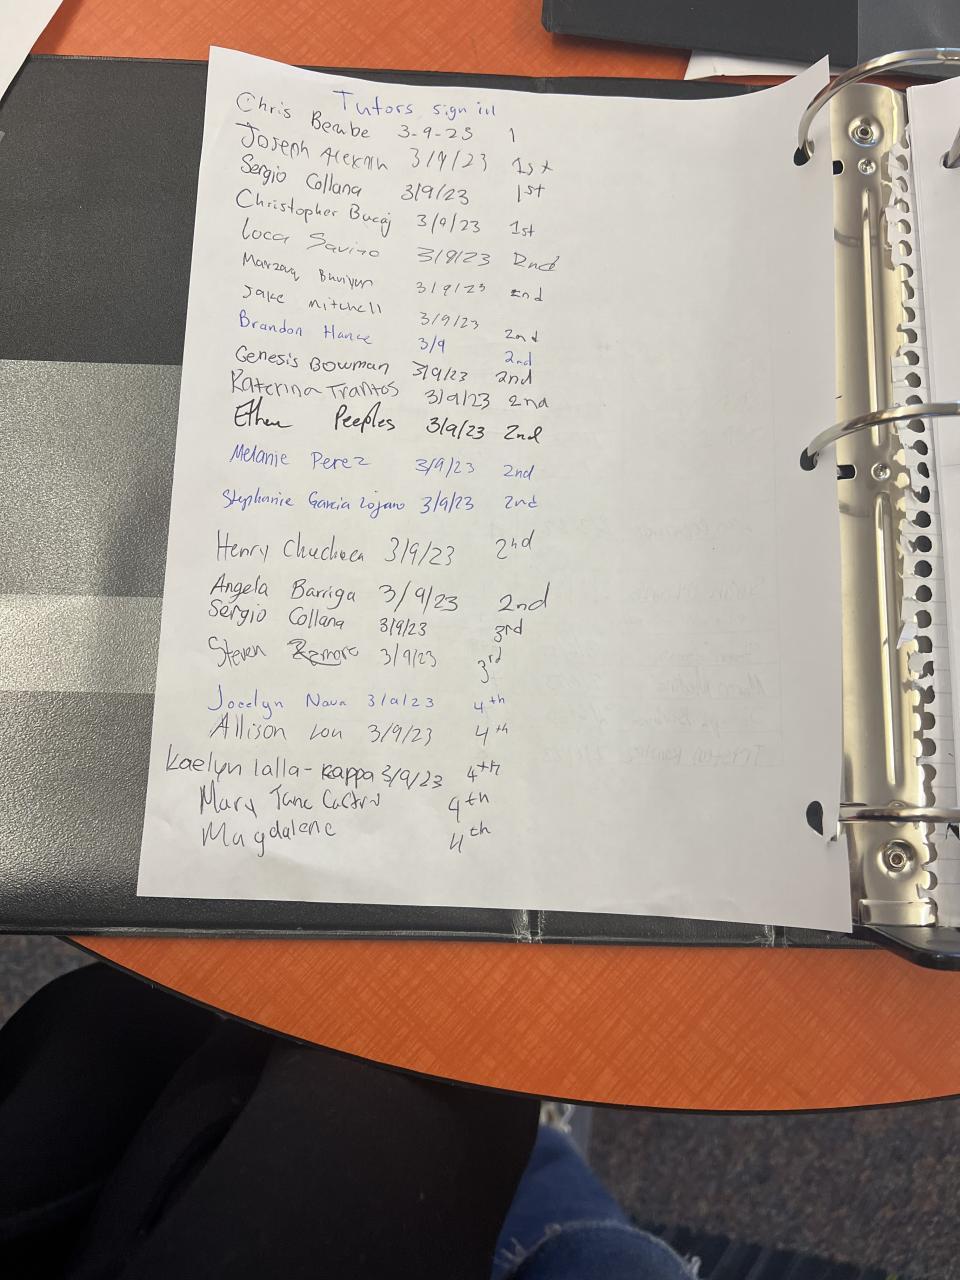 Tutors sign in
Chris Beabe 3-9-23 1
Joseph 3/9/23 1st
Sergio Collana 3/9/23 1st
Christopher Bucaj 3/9/23 1st
Loca Savino 3/9/23 2nd
3/9/23 2nd
Jake Mitchell 3/9/23 2nd
Brandon Hance 3/9 2nd
Genesis Bowman 3/9/23 2nd
Katerina Trantos 3/9/23 2nd
Ethan Peeples 3/9/23 2nd
Melanie Perez 3/9/23 2nd
Stephanie Garcia Lojano 3/9/23 2nd
Henry Chuchuca 3/9/23 2nd
Angela Barriga 3/9/23 2nd
Sergio Collana 3/9/23 3rd
Steven 3/9/23 3rd
Jocelyn Nava 3/9/23 4th
Allison Lou 3/9/23 4th
Kaelyn Lalla-Kappa 3/9/23 4th
Mary Jane Castro 4th
Magdalene 4th